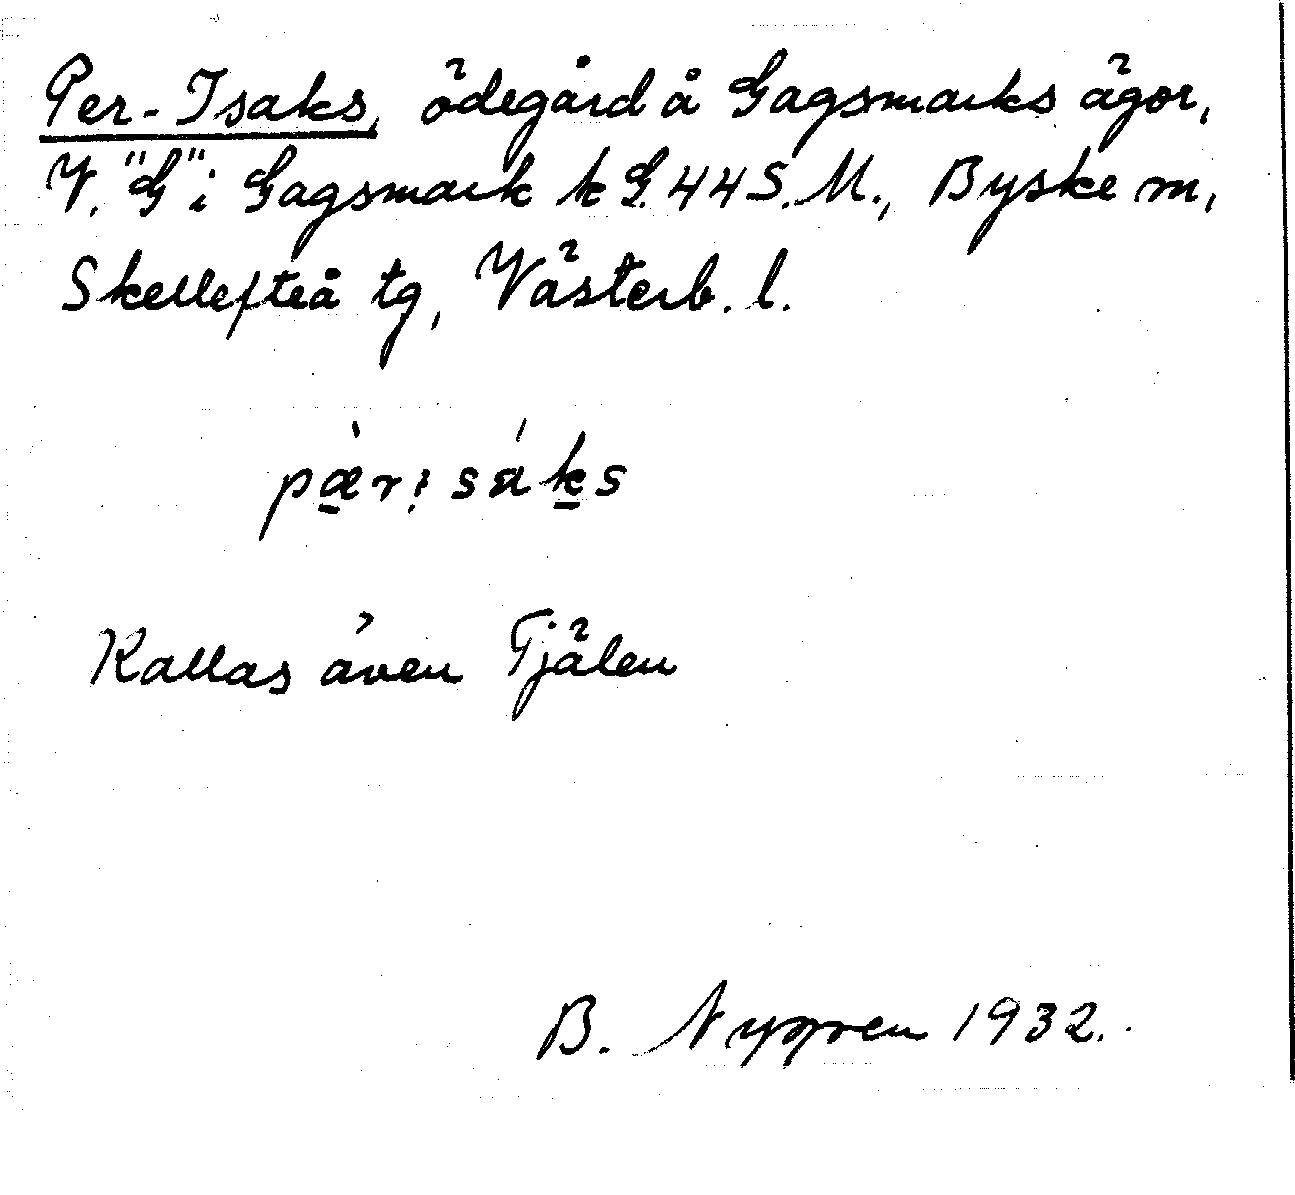 Per-Isaks, ödegård å Gagsmarks ägor,
V. "G" i Gagsmark k G. 44 S. M., Byske m,
Skellefteå tg, Västerb. l.
pær: sáks
Kallas även Tjålen
B. Nygren 1932.